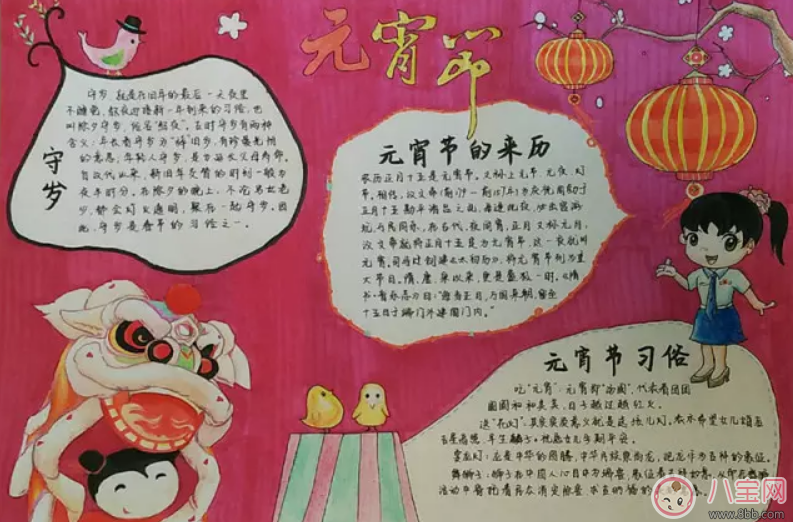 元宵节
守岁
守岁,就是在旧年的最后一天夜里
不睡觉,熬夜迎接新一年到来的习俗,也
叫除夕守岁,俗名“熬夜”。古时守岁有两种
含义:年长者守岁为“辞旧岁”,有珍爱光阴
的意思,年轻人守岁,是为延长父母寿命。
自汉代以来,新旧年交替的时刻一般为
夜半时分。在除夕的晚上,不论男女老
少,都会灯火通明,聚在一起守岁。因
此,守岁是春节的习俗之一。
元宵节的来历
农历正月十五是元宵节,又称上元节,元夜,灯
节。相传,汉文帝(前179—前157年)为庆祝周勃于
正月十五勘平诸吕之乱,每逢此夜,必出宫游
玩,与民同乐,在古代,夜同宵,正月又称元月,
汉文帝就将正月十五定为元宵节,这一夜就叫
元宵。司马迁创建《太初历》,将元宵节列为重
大节日。隋、唐、宋以来,更是盛极一时。《隋
书·音乐志》曰:“每当正月,万国来朝,留至
十五日于端门外建国门内。”
元宵节习俗
吃“元宵”:元宵即“汤圆”,代表着团团
圆圆和和美美,日子越过越红火。
送“花灯”:其实质意义就是送孩儿灯,
耍龙灯:龙是中华的图腾,中华
舞狮子:狮子在中国人心目中为瑞兽,象征着吉祥如意,从而在舞狮
活动中寄托着
八宝网
www.8bb.com